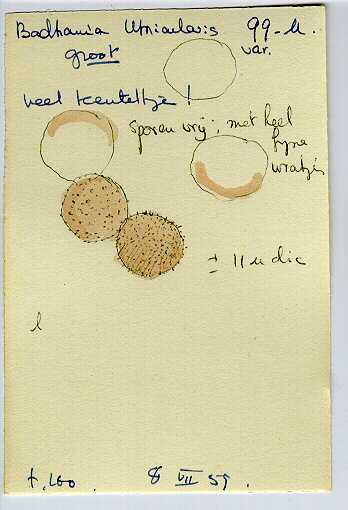 Badhamia Utricularis 99-M.
groot var.
heel
sporen vrij; met heel
fijne
wratjes
± 11 µ dic
l
8 VII 59.